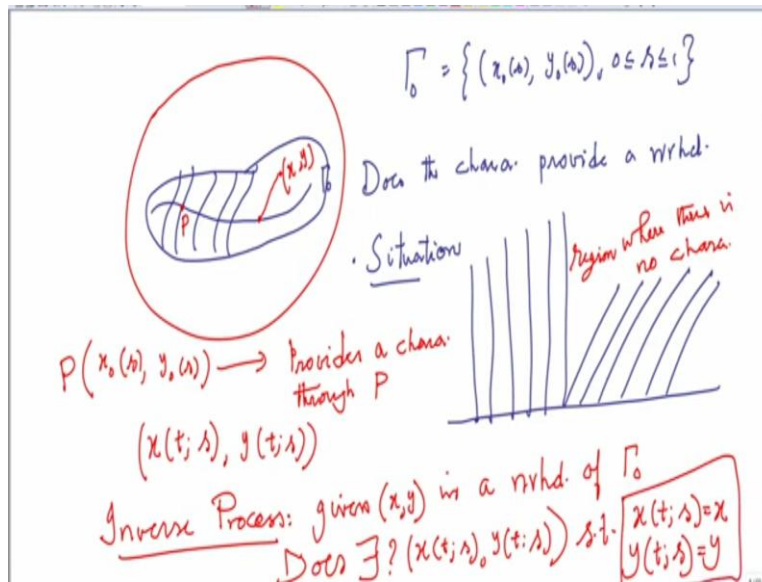 Γ₀ = {(x₀(s), y₀(s)), 0 ≤ s ≤ 1}
(x,y)
Γ₀
P
Does the chara. provide a nrhd.
. Situation
region where there is
no chara.
P(x₀(s), y₀(s)) ⟶ Provides a chara.
through P
(x(t; s), y(t; s))
Inverse Process: given (x,y) in a nrhd. of Γ₀
Does ∃? (x(t; s), y(t; s)) s.t. x(t; s)=x
y(t; s)=y